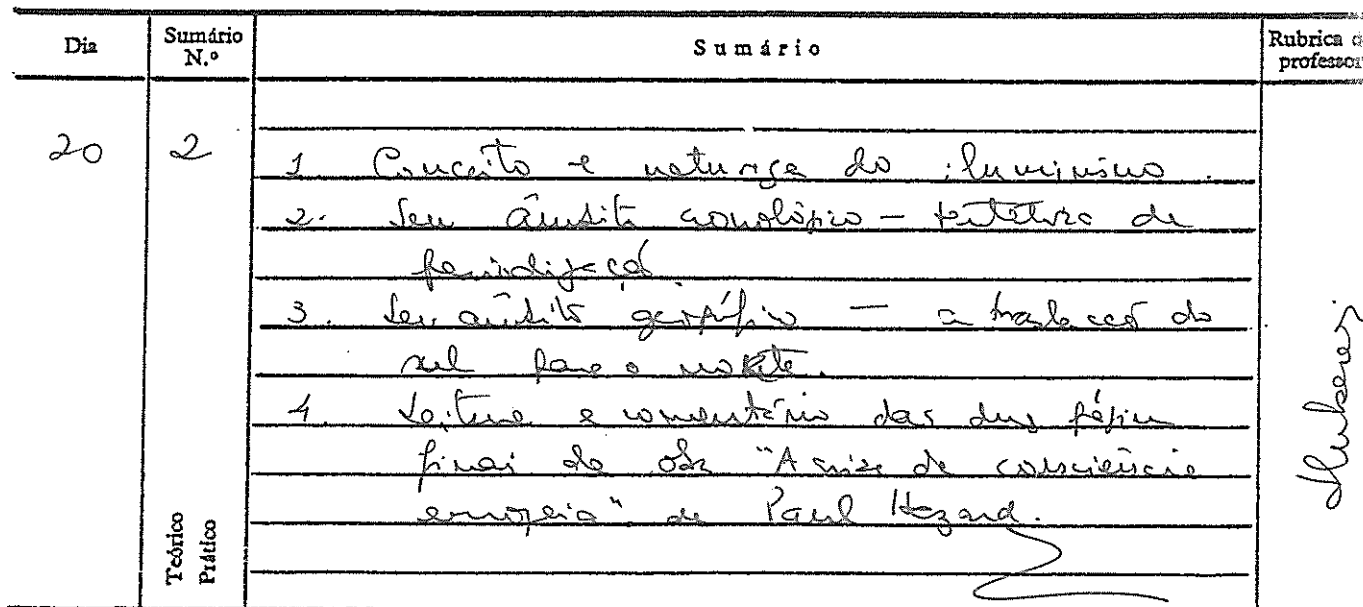 Dia Sumário N.º Sumário Rubrica d professor
20 2
1 Conceito e natureza do iluminismo.
2. Seu âmbito cronológico - tentativa de
periodização
3. Seu âmbito geográfico - a translacção do
sul para o norte.
4. Leitura e comentário das duas páginas
finais da obra "A crise da consciência
europeia" de Paul Hazard.
Teórico
Prático